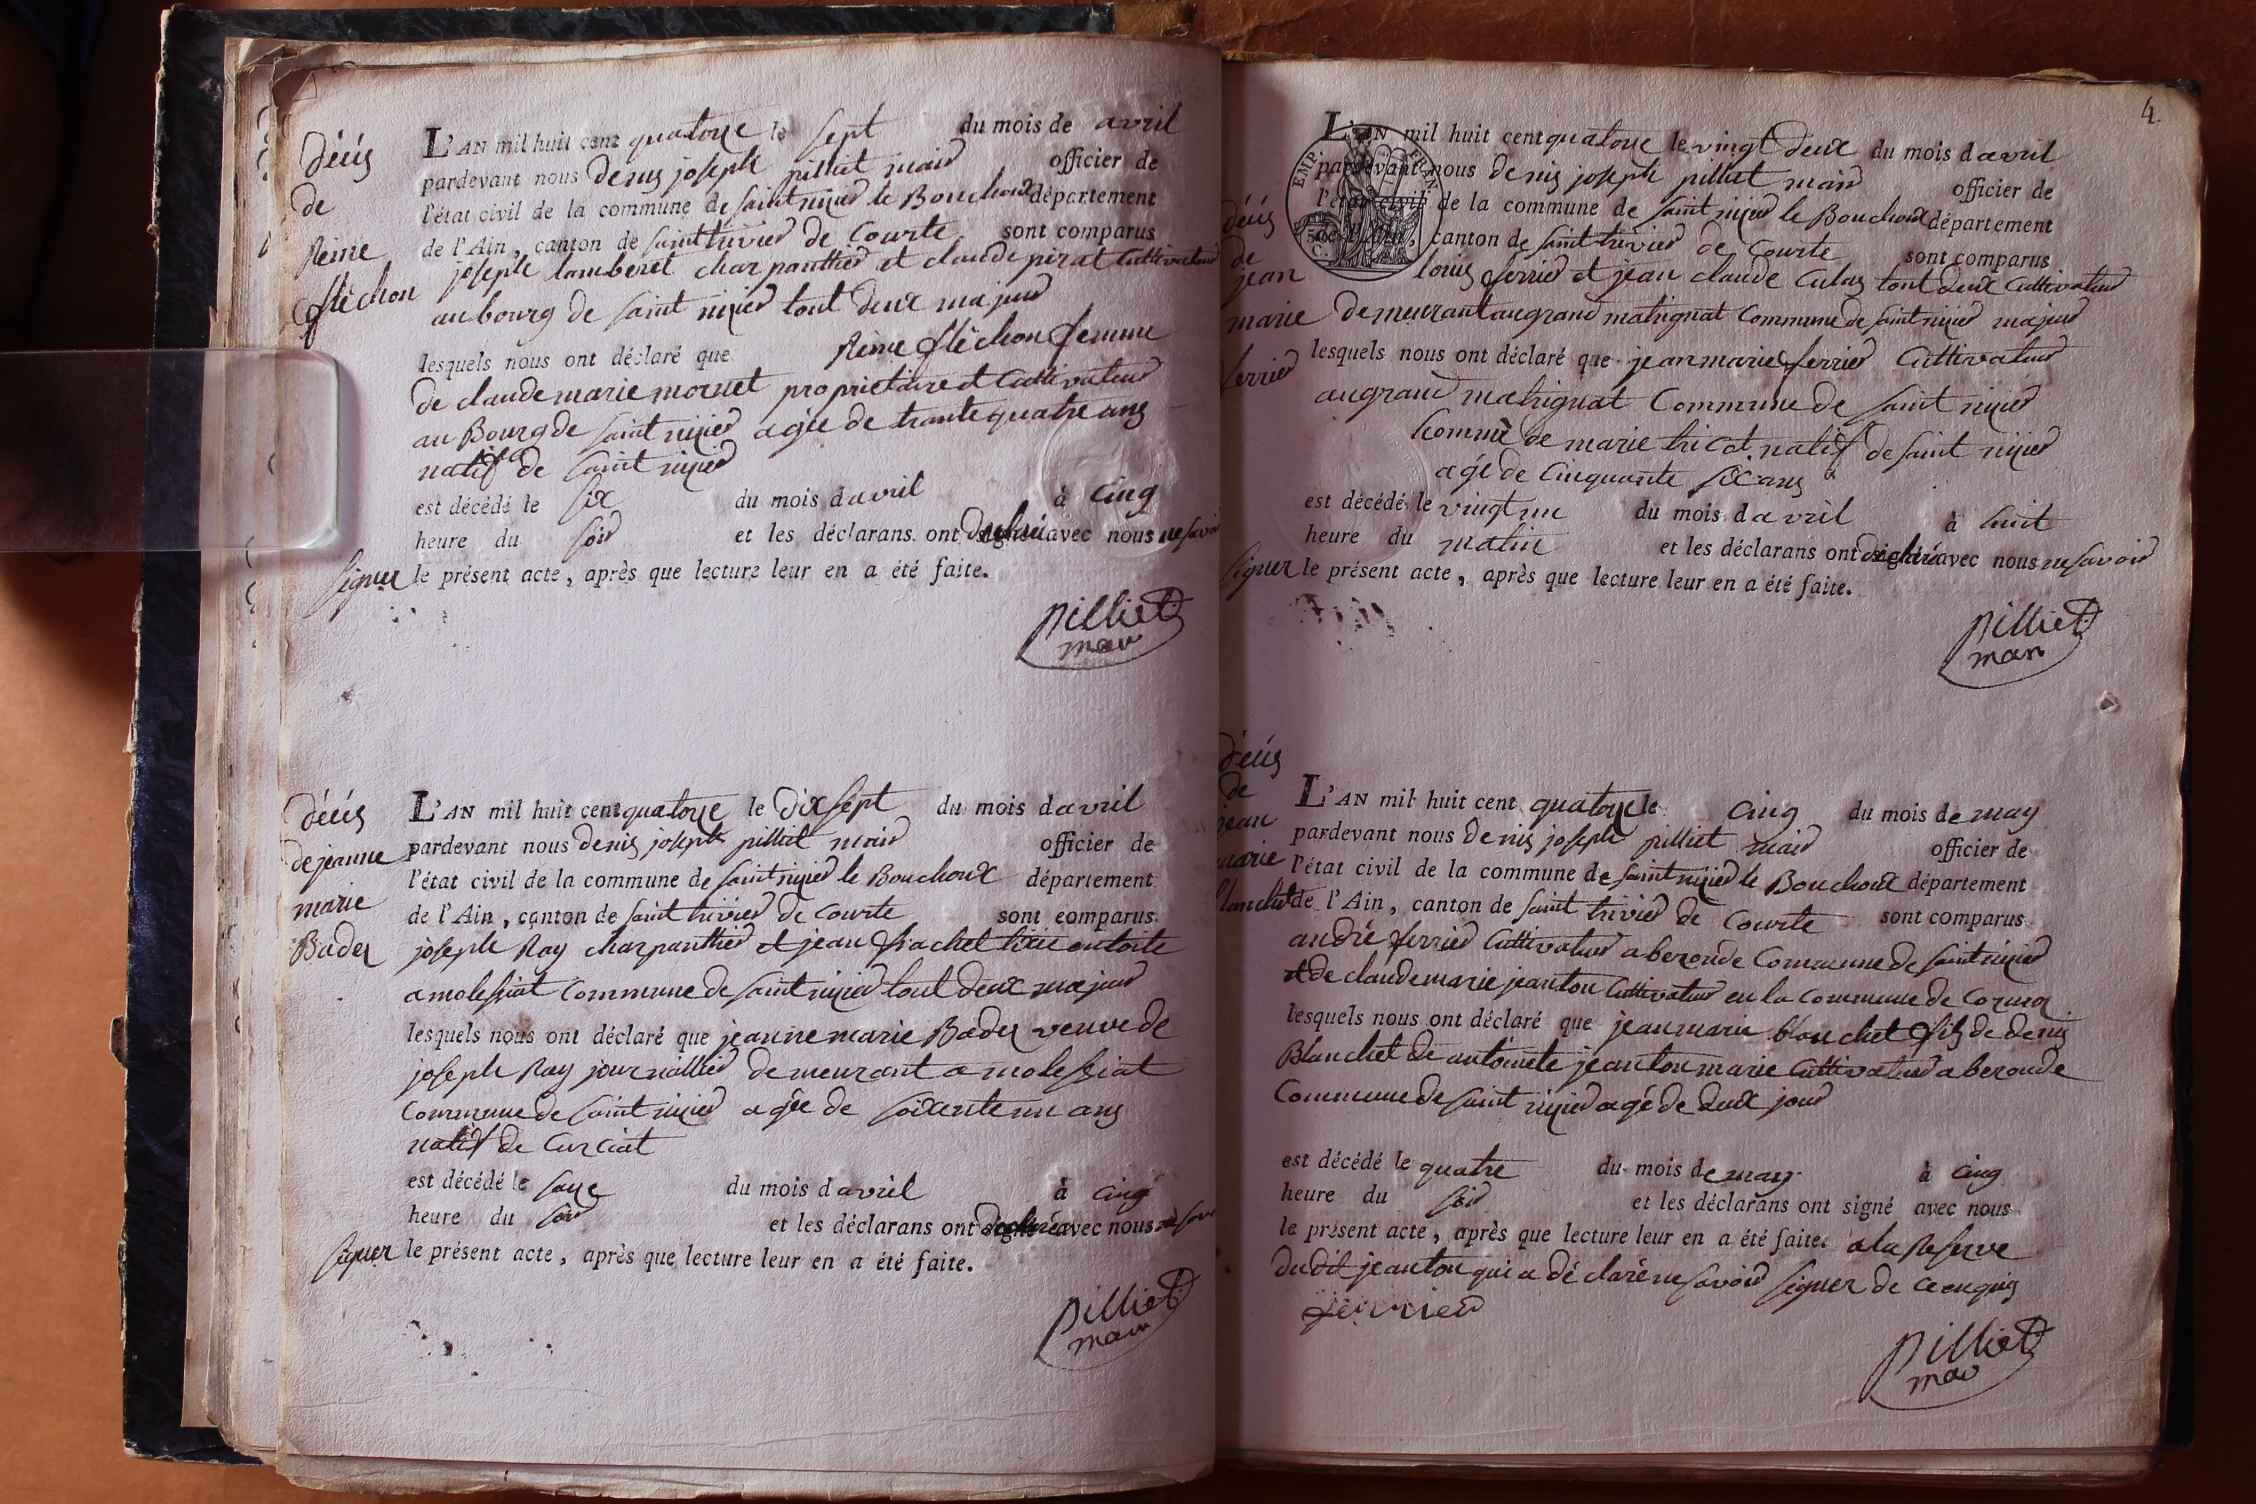 déces
de
Reine
fléchon
L'AN mil huit cent quatorze le sept du mois de avril
pardevant nous denis joseph pilliet maire officier de
l'état civil de la commune de saint nizier le Bouchoux département
de l'Ain, canton de saint trivier de Courte sont comparus
joseph lamberet charpanthier et claude pirat Cultivateur
au bourg de saint nizier tout deux majeur
lesquels nous ont déclaré que Reine fléchon femme
de claude marie moruet propriétaire et Cultivateur
au Bourg de saint nizier agée de trante quatre ans
natif de saint nizier
est décédé le six du mois d avril à cinq
heure du soir et les déclarans ont declaré avec nous ne savoir
signer le présent acte, après que lecture leur en a été faite.
pilliet
maire
déces
de jeanne
marie
Bader
L'AN mil huit cent quatorze le dix sept du mois d avril
pardevant nous denis joseph pilliet maire officier de
l'état civil de la commune de saint nizier le Bouchoux département
de l'Ain, canton de saint trivier de Courte sont comparus
joseph Ray charpanthier et jean frachet en toile
a molessiat Commune de saint nizier tout deux majeur
lesquels nous ont déclaré que jeanne marie Bader veuve de
joseph Ray journallier demeurant a molessiat
Commune de saint nizier agée de soixante un ans
natif de Curciat
est décédé le saize du mois d avril à cinq
heure du soir et les déclarans ont declaré avec nous ne savoir
signer le présent acte, après que lecture leur en a été faite.
pilliet
maire
4.
déces
de
jean
marie
ferrier
EMP. FRAN.
L'AN mil huit cent quatorze le vingt deux du mois d avril
pardevant nous denis joseph pilliet maire officier de
l'état civil de la commune de saint nizier le Bouchoux département
de l'Ain, canton de saint trivier de Courte sont comparus
louis ferrier et jean claude Culas tout deux Cultivateur
demeurant au grand matrignat Commune de saint nizier majeur
lesquels nous ont déclaré que jean marie ferrier Cultivateur
au grand matrignat Commune de saint nizier
homme de marie tricot natif de saint nizier
agé de Cinquante six ans
est décédé le vingt un du mois d avril à huit
heure du matin et les déclarans ont declaré avec nous ne savoir
signer le présent acte, après que lecture leur en a été faite.
pilliet
maire
déces
de
jean
marie
blanchet
L'AN mil huit cent quatorze le cinq du mois de may
pardevant nous denis joseph pilliet maire officier de
l'état civil de la commune de saint nizier le Bouchoux département
de l'Ain, canton de saint trivier de Courte sont comparus
andré ferrier Cultivateur a beronde Commune de saint nizier
et de claude marie jeanton Cultivateur en la Commune de Cormoz
lesquels nous ont déclaré que jean marie blanchet fils de denis
Blanchet de antoinete jeanton marie Cultivateur a beronde
Commune de saint nizier agé de deux jour
est décédé le quatre du mois de may à cinq
heure du soir et les déclarans ont signé avec nous
le présent acte, après que lecture leur en a été faite. a la Reserve
du dit jeanton qui a déclaré ne savoir signer de ce enquis
ferrier
pilliet
maire